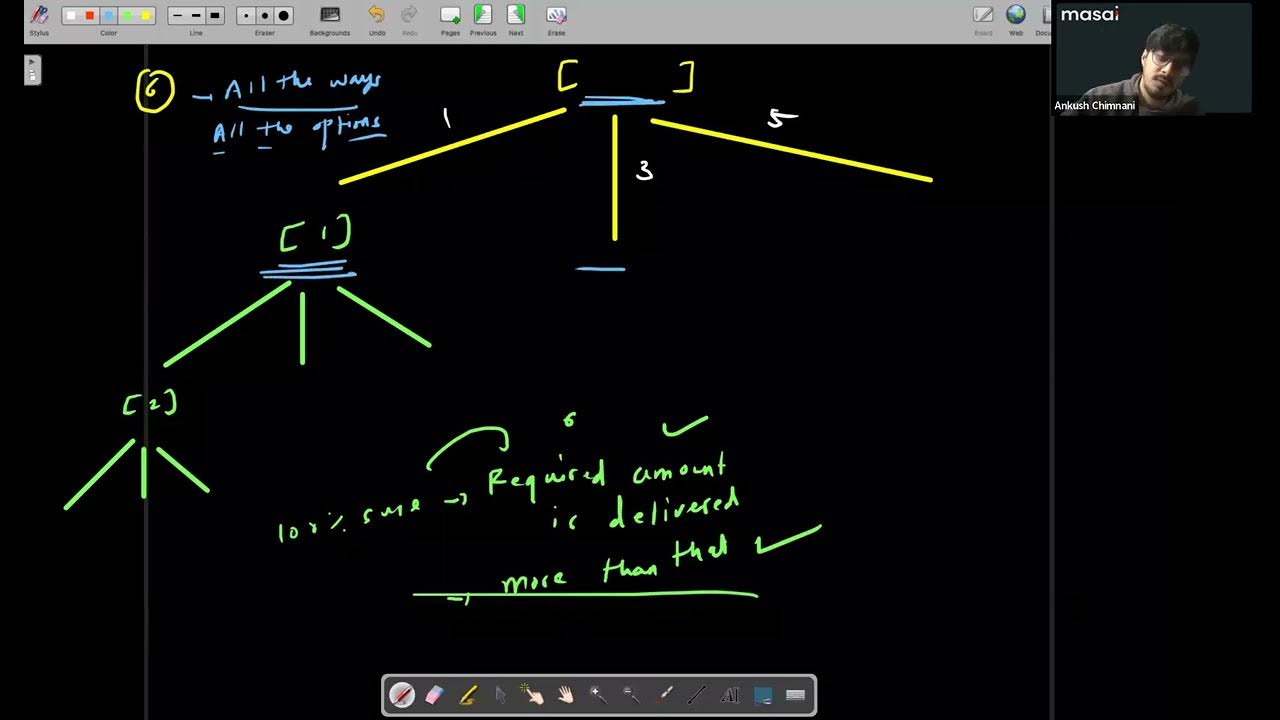 Stylus
Color
Line
Eraser
Backgrounds
Undo
Redo
Pages
Previous
Next
Erase
Board
Web
Docu
masai
Ankush Chimnani
6 → All the ways
All the options
[ ]
1
3
5
[ 1 ]
[ 2 ]
6
100 % sure → Required amount
is delivered
→ more than that